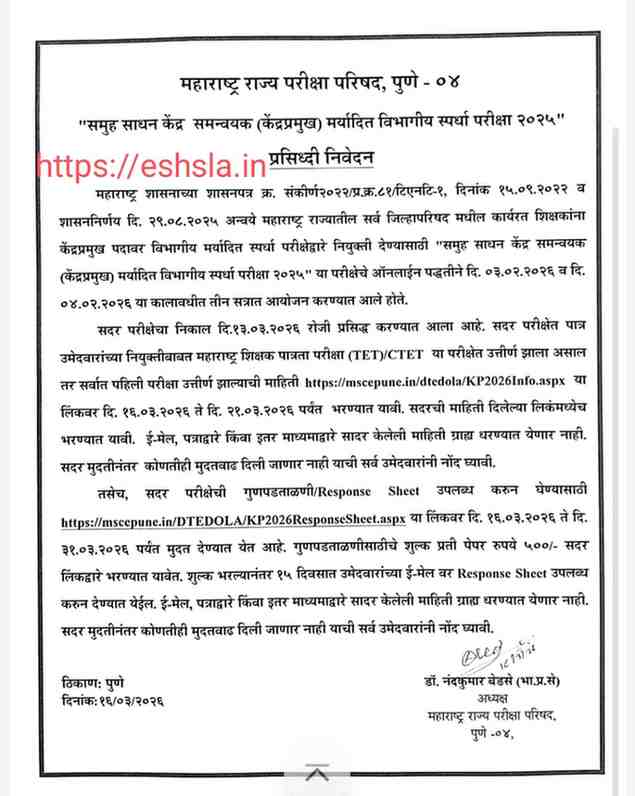 महाराष्ट्र राज्य परीक्षा परिषद, पुणे - ०४
"समुह साधन केंद्र समन्वयक (केंद्रप्रमुख) मर्यादित विभागीय स्पर्धा परीक्षा २०२५"
प्रसिध्दी निवेदन
https://eshsla.in
महाराष्ट्र शासनाच्या शासनपत्र क्र. संकीर्ण२०२२/प्र.क्र.८१/टिएनटि-१, दिनांक १५.०९.२०२२ व
शासननिर्णय दि. २९.०८.२०२५ अन्वये महाराष्ट्र राज्यातील सर्व जिल्हापरिषद मधील कार्यरत शिक्षकांना
केंद्रप्रमुख पदावर विभागीय मर्यादित स्पर्धा परीक्षेद्वारे नियुक्ती देण्यासाठी "समुह साधन केंद्र समन्वयक
(केंद्रप्रमुख) मर्यादित विभागीय स्पर्धा परीक्षा २०२५" या परीक्षेचे ऑनलाईन पद्धतीने दि. ०३.०२.२०२६ व दि.
०४.०२.२०२६ या कालावधीत तीन सत्रात आयोजन करण्यात आले होते.
सदर परीक्षेचा निकाल दि.१३.०३.२०२६ रोजी प्रसिद्ध करण्यात आला आहे. सदर परीक्षेत पात्र
उमेदवारांच्या नियुक्तीबाबत महाराष्ट्र शिक्षक पात्रता परीक्षा (TET)/CTET या परीक्षेत उत्तीर्ण झाला असाल
तर सर्वात पहिली परीक्षा उत्तीर्ण झाल्याची माहिती https://mscepune.in/dtedola/KP2026Info.aspx या
लिंकवर दि. १६.०३.२०२६ ते दि. २१.०३.२०२६ पर्यंत भरण्यात यावी. सदरची माहिती दिलेल्या लिकंमध्येच
भरण्यात यावी. ई-मेल, पत्राद्वारे किंवा इतर माध्यमाद्वारे सादर केलेली माहिती ग्राह्य धरण्यात येणार नाही.
सदर मुदतीनंतर कोणतीही मुदतवाढ दिली जाणार नाही याची सर्व उमेदवारांनी नोंद घ्यावी.
तसेच, सदर परीक्षेची गुणपडताळणी/Response Sheet उपलब्ध करुन घेण्यासाठी
https://mscepune.in/DTEDOLA/KP2026ResponseSheet.aspx या लिंकवर दि. १६.०३.२०२६ ते दि.
३१.०३.२०२६ पर्यंत मुदत देण्यात येत आहे. गुणपडताळणीसाठीचे शुल्क प्रती पेपर रुपये ५००/- सदर
लिंकद्वारे भरण्यात यावेत. शुल्क भरल्यानंतर १५ दिवसात उमेदवारांच्या ई-मेल वर Response Sheet उपलब्ध
करुन देण्यात येईल. ई-मेल, पत्राद्वारे किंवा इतर माध्यमाद्वारे सादर केलेली माहिती ग्राह्य धरण्यात येणार नाही.
सदर मुदतीनंतर कोणतीही मुदतवाढ दिली जाणार नाही याची सर्व उमेदवारांनी नोंद घ्यावी.
ठिकाण: पुणे
दिनांक:१६/०३/२०२६
डॉ. नंदकुमार बेडसे (भा.प्र.से)
अध्यक्ष
महाराष्ट्र राज्य परीक्षा परिषद,
पुणे -०४,